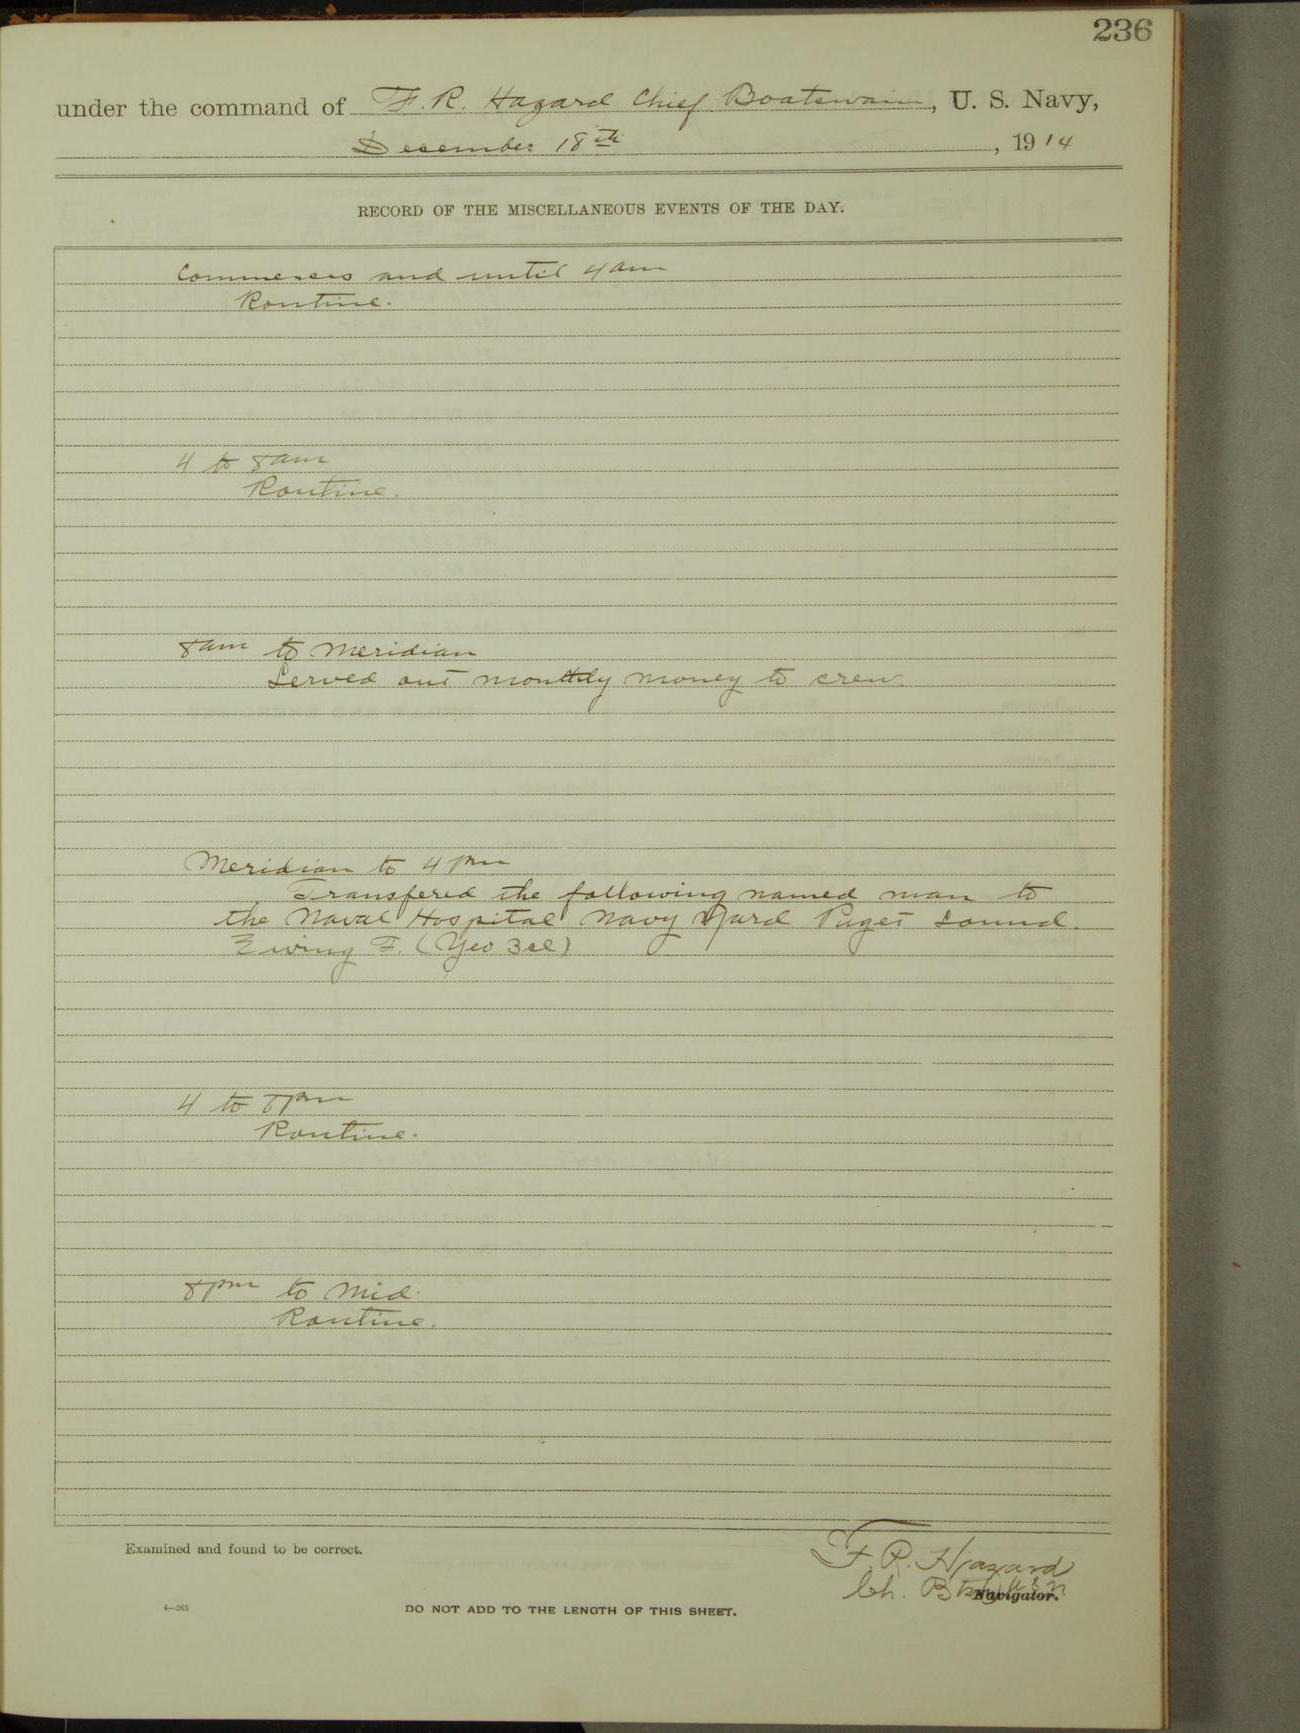 236
under the command of F. R. Hazard Chief Boatswain, U. S. Navy,
December 18th, 1914
RECORD OF THE MISCELLANEOUS EVENTS OF THE DAY.
Commences and until 4 am
Routine.
4 to 8 am
Routine.
8 am to Meridian
Served out monthly money to crew.
Meridian to 4 pm
Transfered the following named man to
the Naval Hospital Navy Yard Puget Sound.
Ewing F. (Yeo 3cl)
4 to 8 pm
Routine.
8 pm to Mid.
Routine.
Examined and found to be correct.
F. R. Hazard
Ch. Btsn USN
Navigator.
4—265
DO NOT ADD TO THE LENGTH OF THIS SHEET.